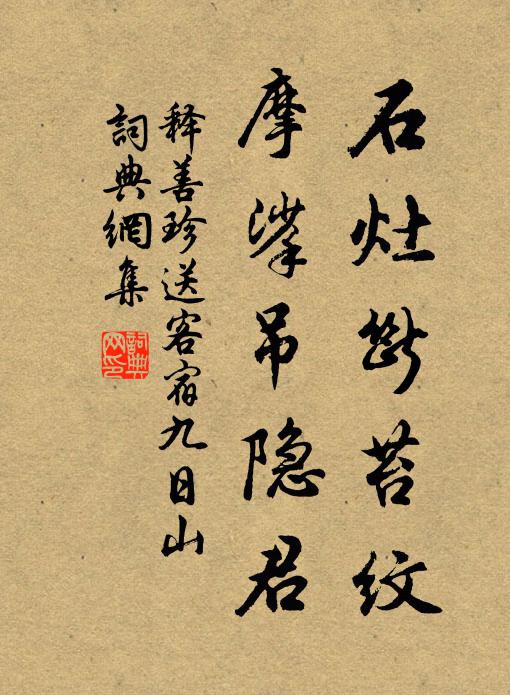 石灶断苔纹
摩挲吊隐君
释善珍送客宿九日山
詞典網集
詞典网印